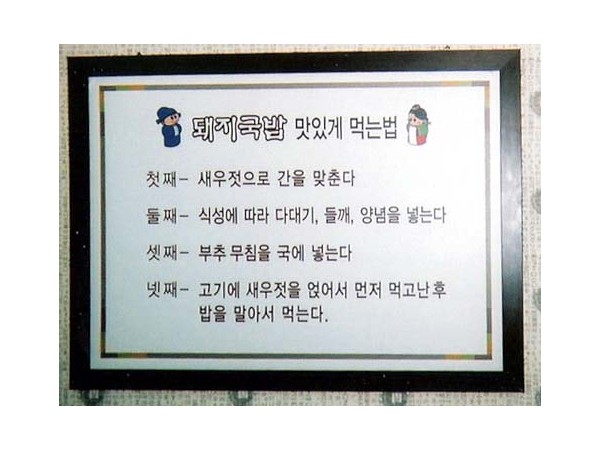 돼지국밥 맛있게 먹는법
첫째- 새우젓으로 간을 맞춘다
둘째- 식성에 따라 다대기, 들깨, 양념을 넣는다
셋째- 부추 무침을 국에 넣는다
넷째- 고기에 새우젓을 얹어서 먼저 먹고난 후
밥을 말아서 먹는다.